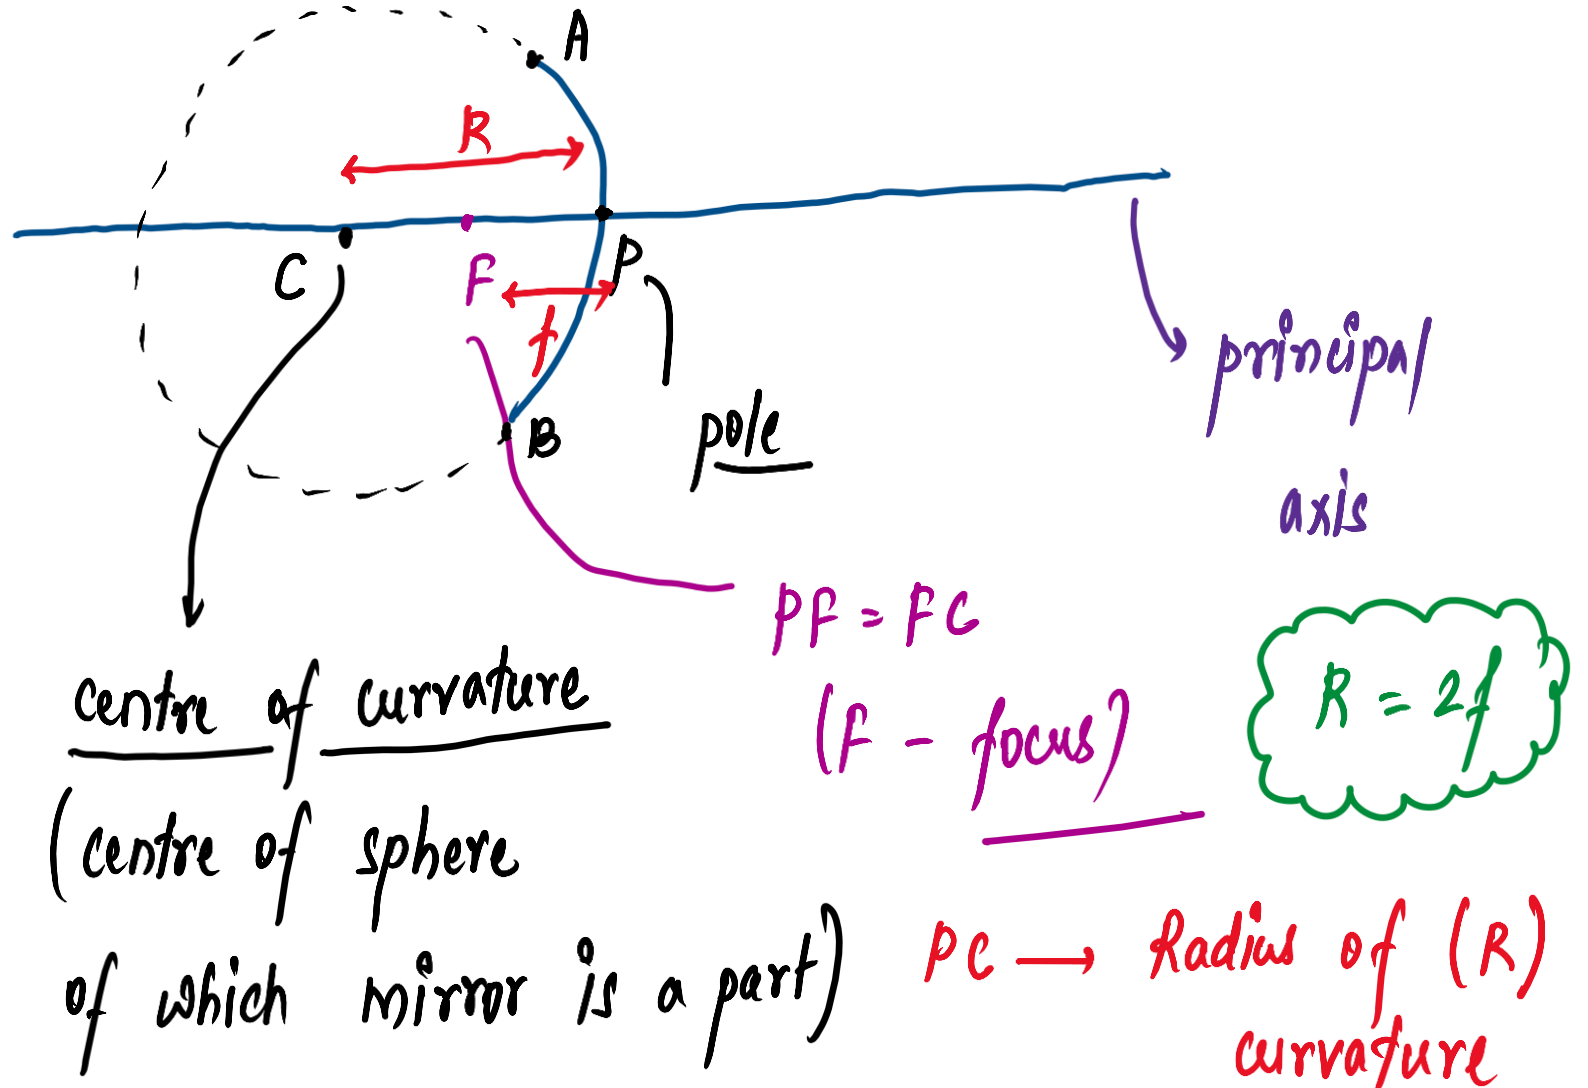 A
R
C
F
P
f
B
pole
principal
axis
PF = FC
(F - focus)
R = 2f
centre of curvature
(centre of sphere
of which mirror is a part)
PC → Radius of (R)
curvature